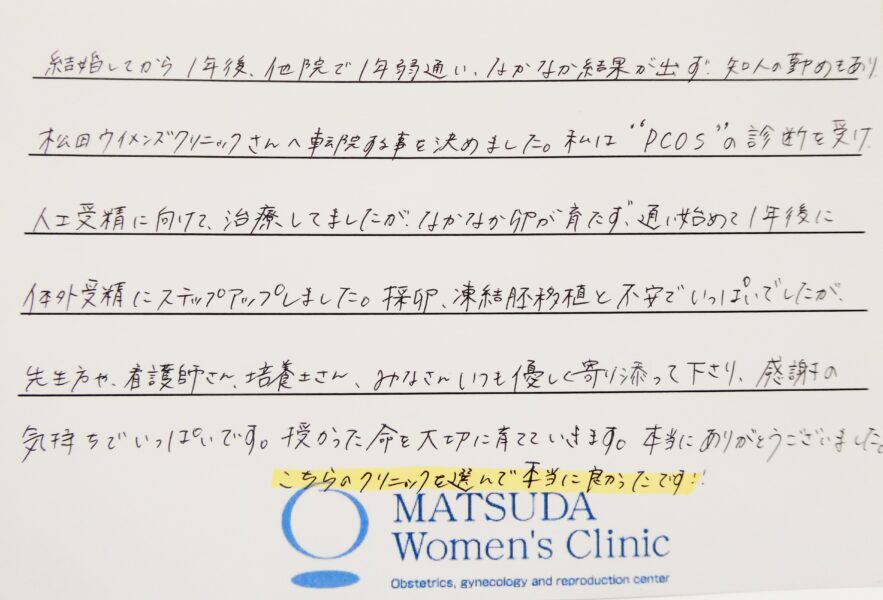 結婚してから1年後、他院で1年弱通い、なかなか結果が出ず、知人の勤めもあり、
松田ウイメンズクリニックさんへ転院する事を決めました。私は“PCOS”の診断を受け、
人工受精に向けて、治療してましたが、なかなか卵が育たず、通い始めて1年後に
体外受精にステップアップしました。採卵、凍結胚移植と不安でいっぱいでしたが、
先生方や、看護師さん、培養士さん、みなさんいつも優しく寄り添って下さり、感謝の
気持ちでいっぱいです。授かった命を大切に育てていきます。本当にありがとうございました。
こちらのクリニックを選んで本当に良かったです!!
MATSUDA
Women's Clinic
Obstetrics, gynecology and reproduction center